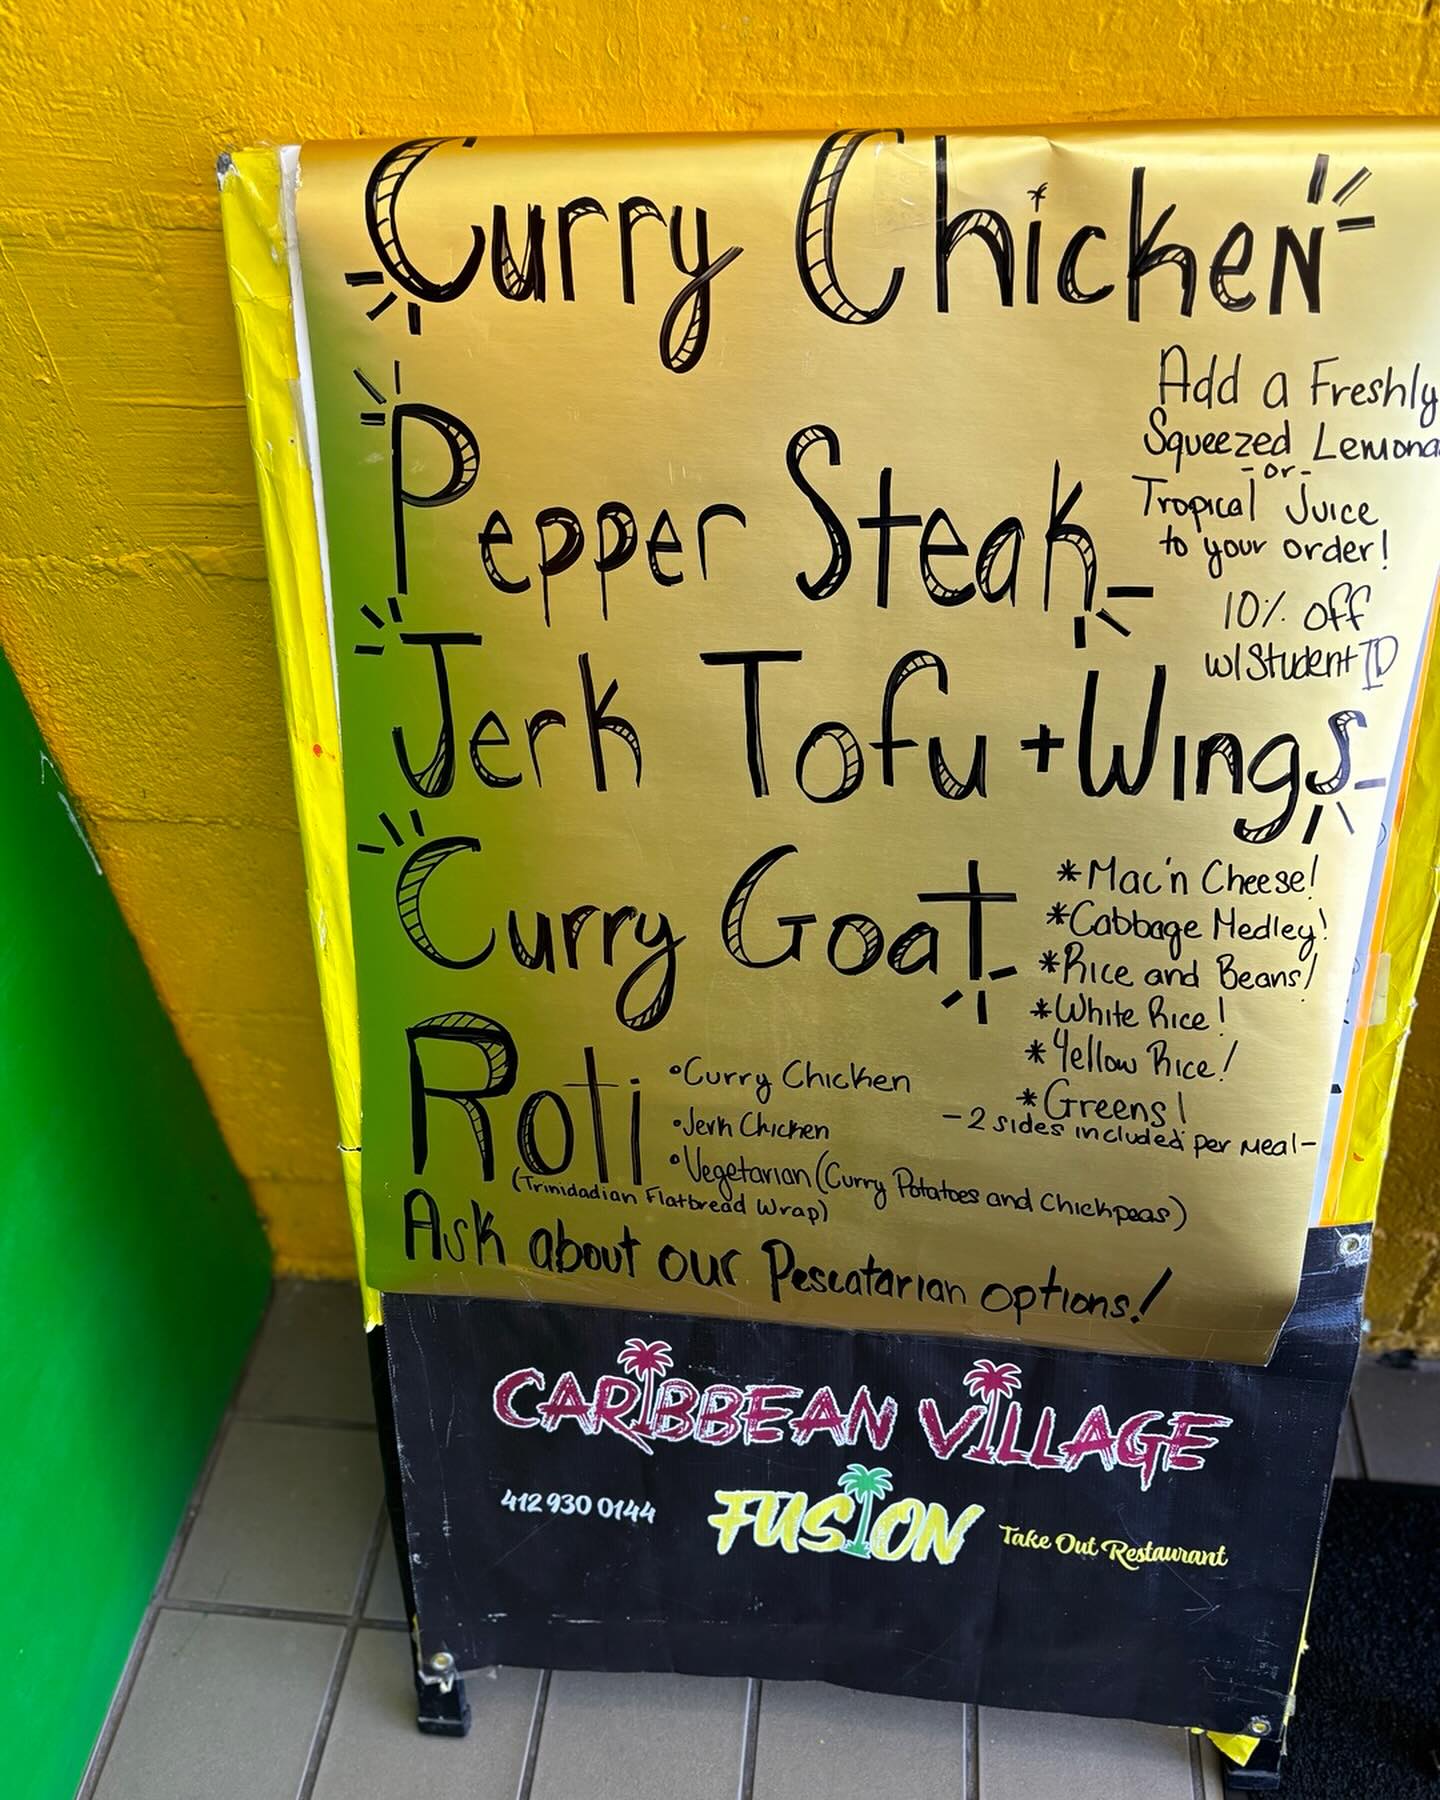 Curry Chicken
Add a Freshly
Squeezed Lemona
-or-
Tropical Juice
to your order!
Pepper Steak
10% off
w/Student ID
Jerk Tofu + Wings
Curry Goat
*Mac'n Cheese!
*Cabbage Medley!
*Rice and Beans!
*White Rice!
*Yellow Rice!
*Greens!
-2 sides included per meal-
Roti
•Curry Chicken
•Jerk Chicken
•Vegetarian (Curry Potatoes and Chickpeas)
(Trinidadian Flatbread Wrap)
Ask about our Pescatarian options!
CARIBBEAN VILLAGE
FUSION
412 930 0144
Take Out Restaurant